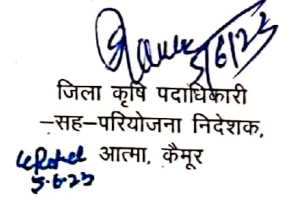 5/6/23
जिला कृषि पदाधिकारी
–सह–परियोजना निदेशक,
आत्मा, कैमूर
5-6-23